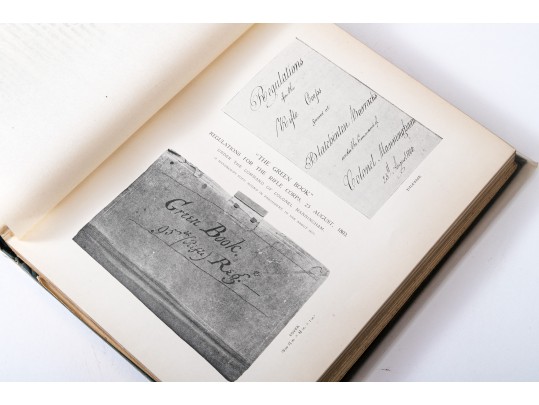 Regulations
for the
Rifle Corps
formed at
Blatchinton Barracks
under the Command of
Colonel Manningham
25th August 1800
"THE GREEN BOOK"
REGULATIONS FOR THE RIFLE CORPS, 21 AUGUST, 1801,
UNDER THE COMMAND OF COLONEL MANNINGHAM,
Green Book.
95th (Rifle) Regt.